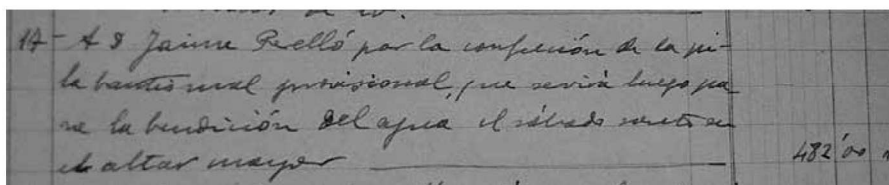 17 - A D Jaime Perelló por la confección de la pi-
la bautismal provisional, que servirá luego pa-
ra la bendición del agua el sábado santo en
el altar mayor 482'00